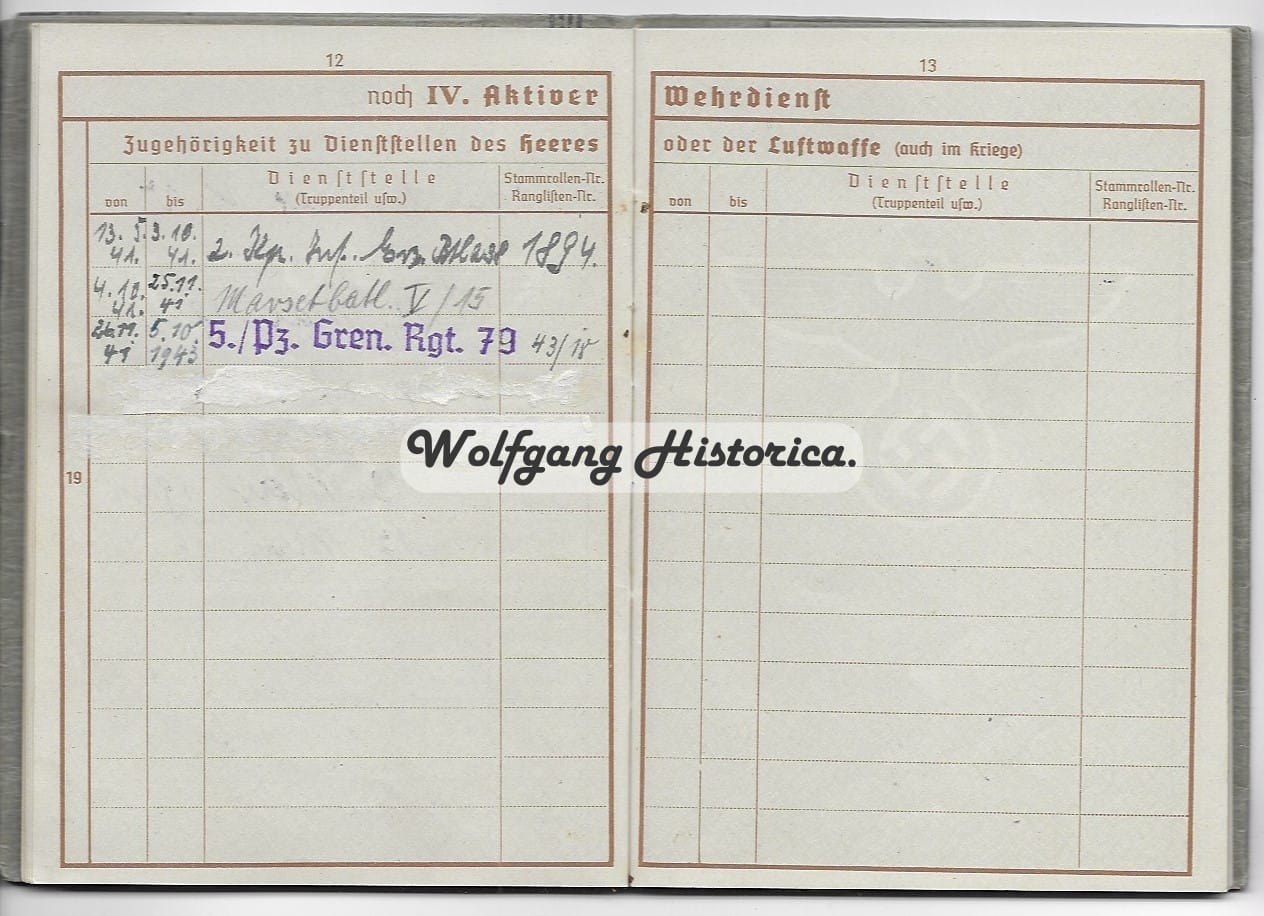 12
noch IV. Aktiver
Zugehörigkeit zu Dienststellen des Heeres
von
bis
Dienststelle
(Truppenteil usw.)
Stammrollen-Nr.
Ranglisten-Nr.
13. 5. 41.
3. 10. 41.
2. Kp. Inf. 1894.
4. 10. 41.
25.11. 41
Marschbatl. V/15
26.11. 41
5.10. 1943
5./Pz. Gren. Rgt. 79
19
13
Wehrdienst
oder der Luftwaffe (auch im Kriege)
von
bis
Dienststelle
(Truppenteil usw.)
Stammrollen-Nr.
Ranglisten-Nr.
Wolfgang Historica.